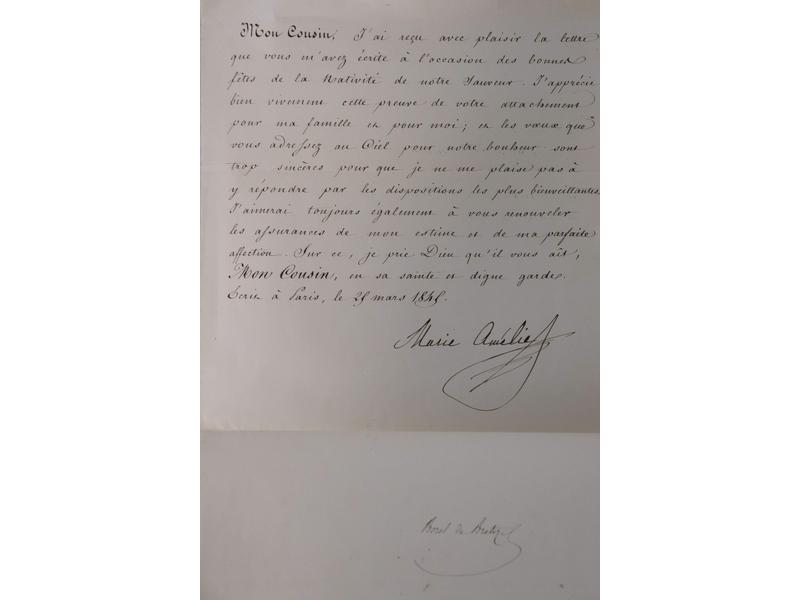 Mon Cousin, J'ai reçu avec plaisir la lettre
que vous m'avez écrite à l'occasion des bonnes
fêtes de la Nativité de notre Sauveur. J'apprécie
bien vivement cette preuve de votre attachement
pour ma famille et pour moi; et les vœux que
vous adressez au Ciel pour notre bonheur sont
trop sincères pour que je ne me plaise pas à
y répondre par les dispositions les plus bienveillantes.
J'aimerai toujours également à vous renouveler
les assurances de mon estime et de ma parfaite
affection. Sur ce, je prie Dieu qu'il vous ait,
Mon Cousin, en sa sainte et digne garde.
Ecrit à Paris, le 25 mars 1845.
Marie Amélie
Borel de Bretizel